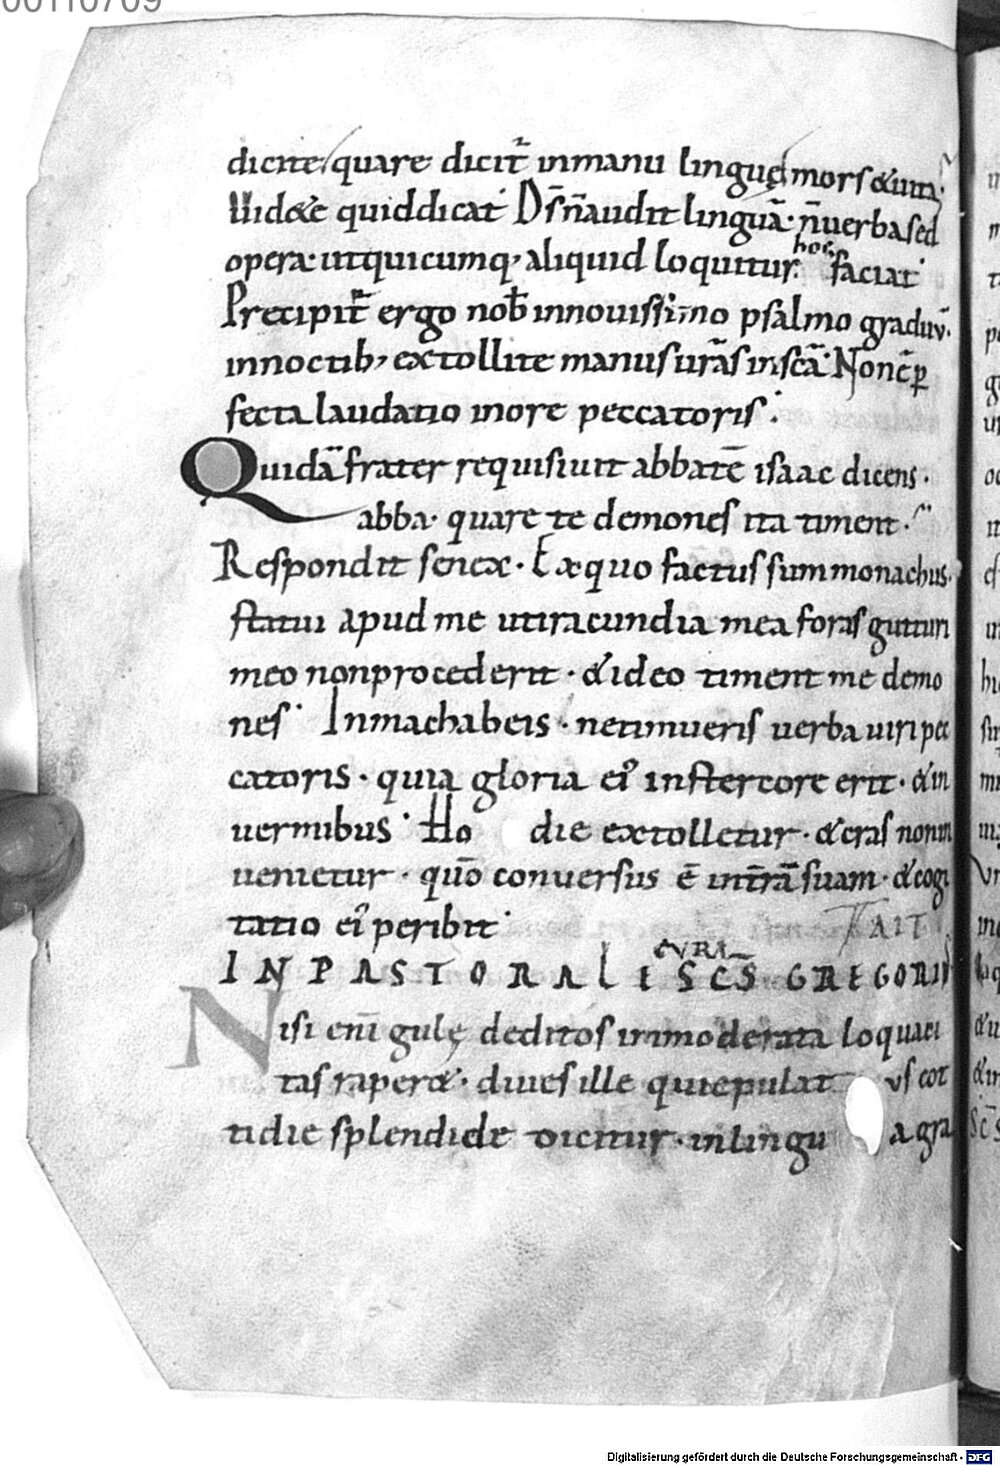 00110709
dicite, quare dicit̄ inmanu linguę mors &uita;
Uid&e quiddicat D̄s n̄audit linguā· n̄uerbased
opera· utquicumq; aliquid loquitur· hoc faciat·
Precipit̄ ergo nob̄ innouissimo psalmo graduū·
innoctib; extollite manus ur̄as insc̄a· Nonē p̱
fecta laudatio inore peccatoris·
Quidā frater requisiuit abbatē isaac dicens·
abba· quare te demones ita timent·
Respondit senex· Exquo factussummonachus·
statui apud me utiracundia mea foras gutturi
meo nonprocederit· &ideo timent me demo
nes· Inmachabeis· netimueris uerba uiri pec
catoris· quia gloria ei᾽ instercore erit· &in
uermibus· Ho die extolletur· &cras nonin
uenietur· quō conuersus ē int̄rā suam· &cogi
tatio ei᾽ peribit·
AIT
CURA
IN PASTORALI SC̄S GREGORIVS
Nisi eni̅ gulę deditos inmoderata loquaci
tas raper&· diues ille quiepulat us cot
tidie splendide dicitur· inlingu a gra
Digitalisierung gefördert durch die Deutsche Forschungsgemeinschaft - DFG